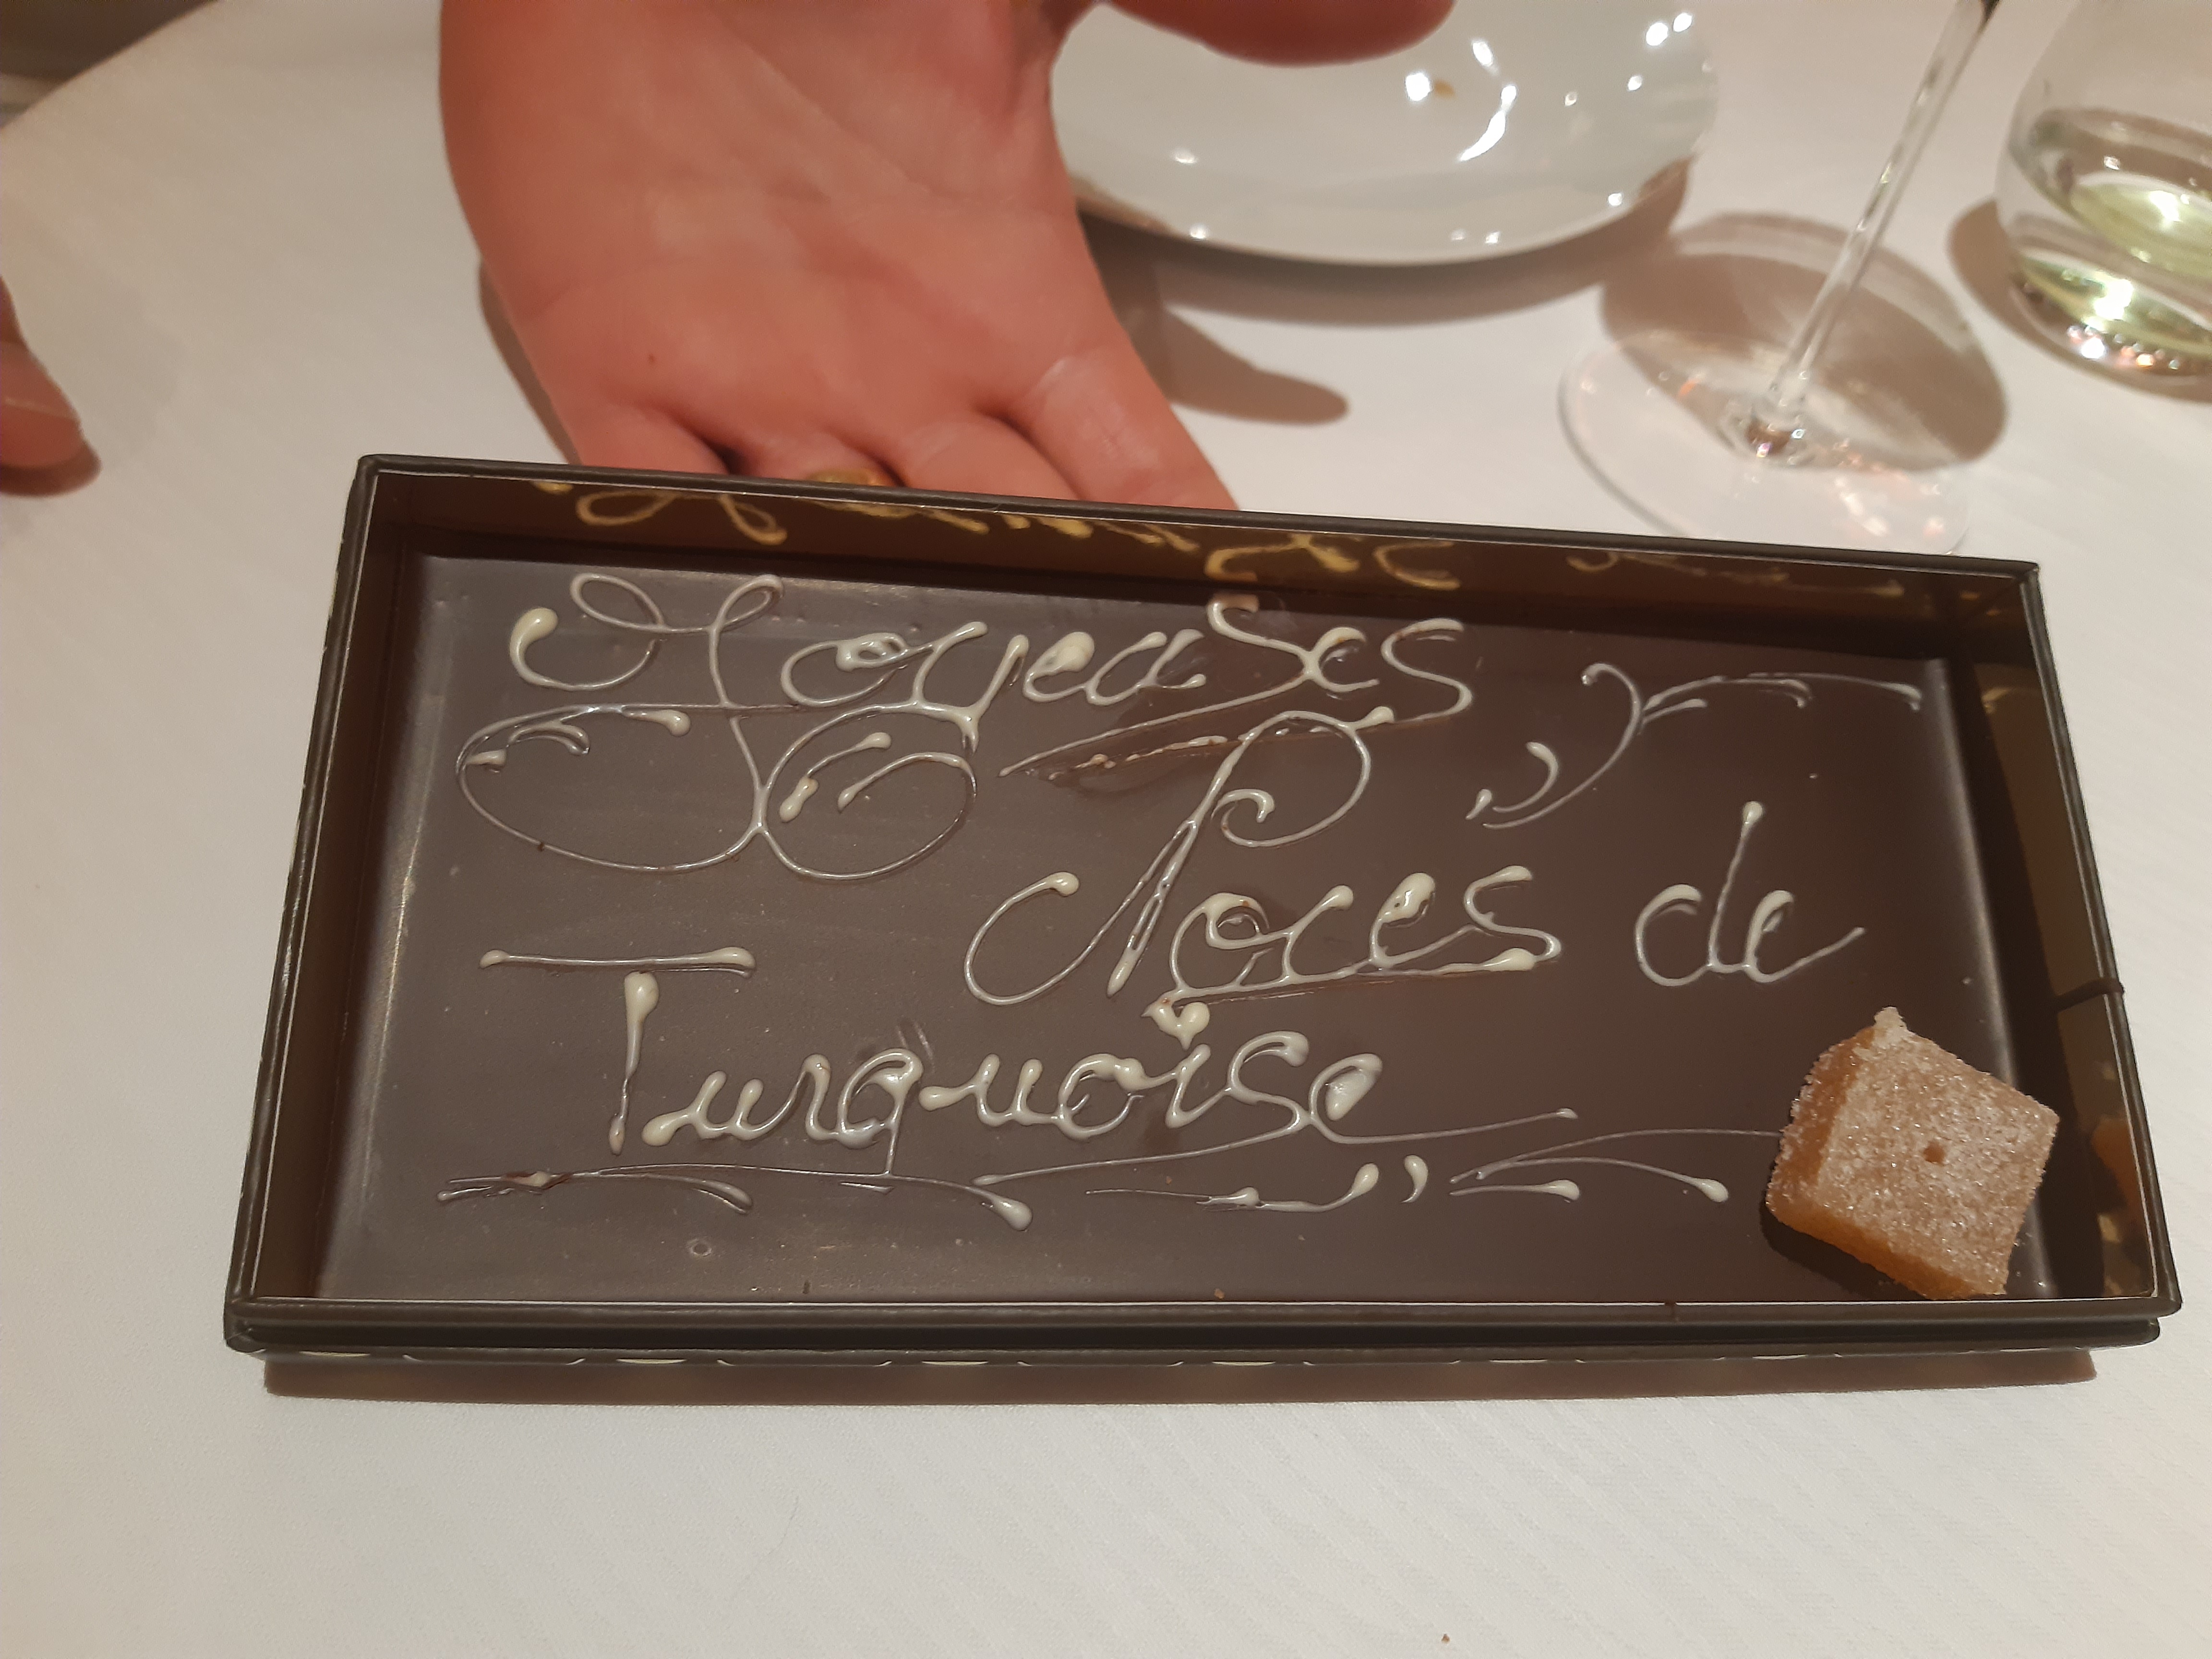 Joyeuses
Noces de
Turquoise